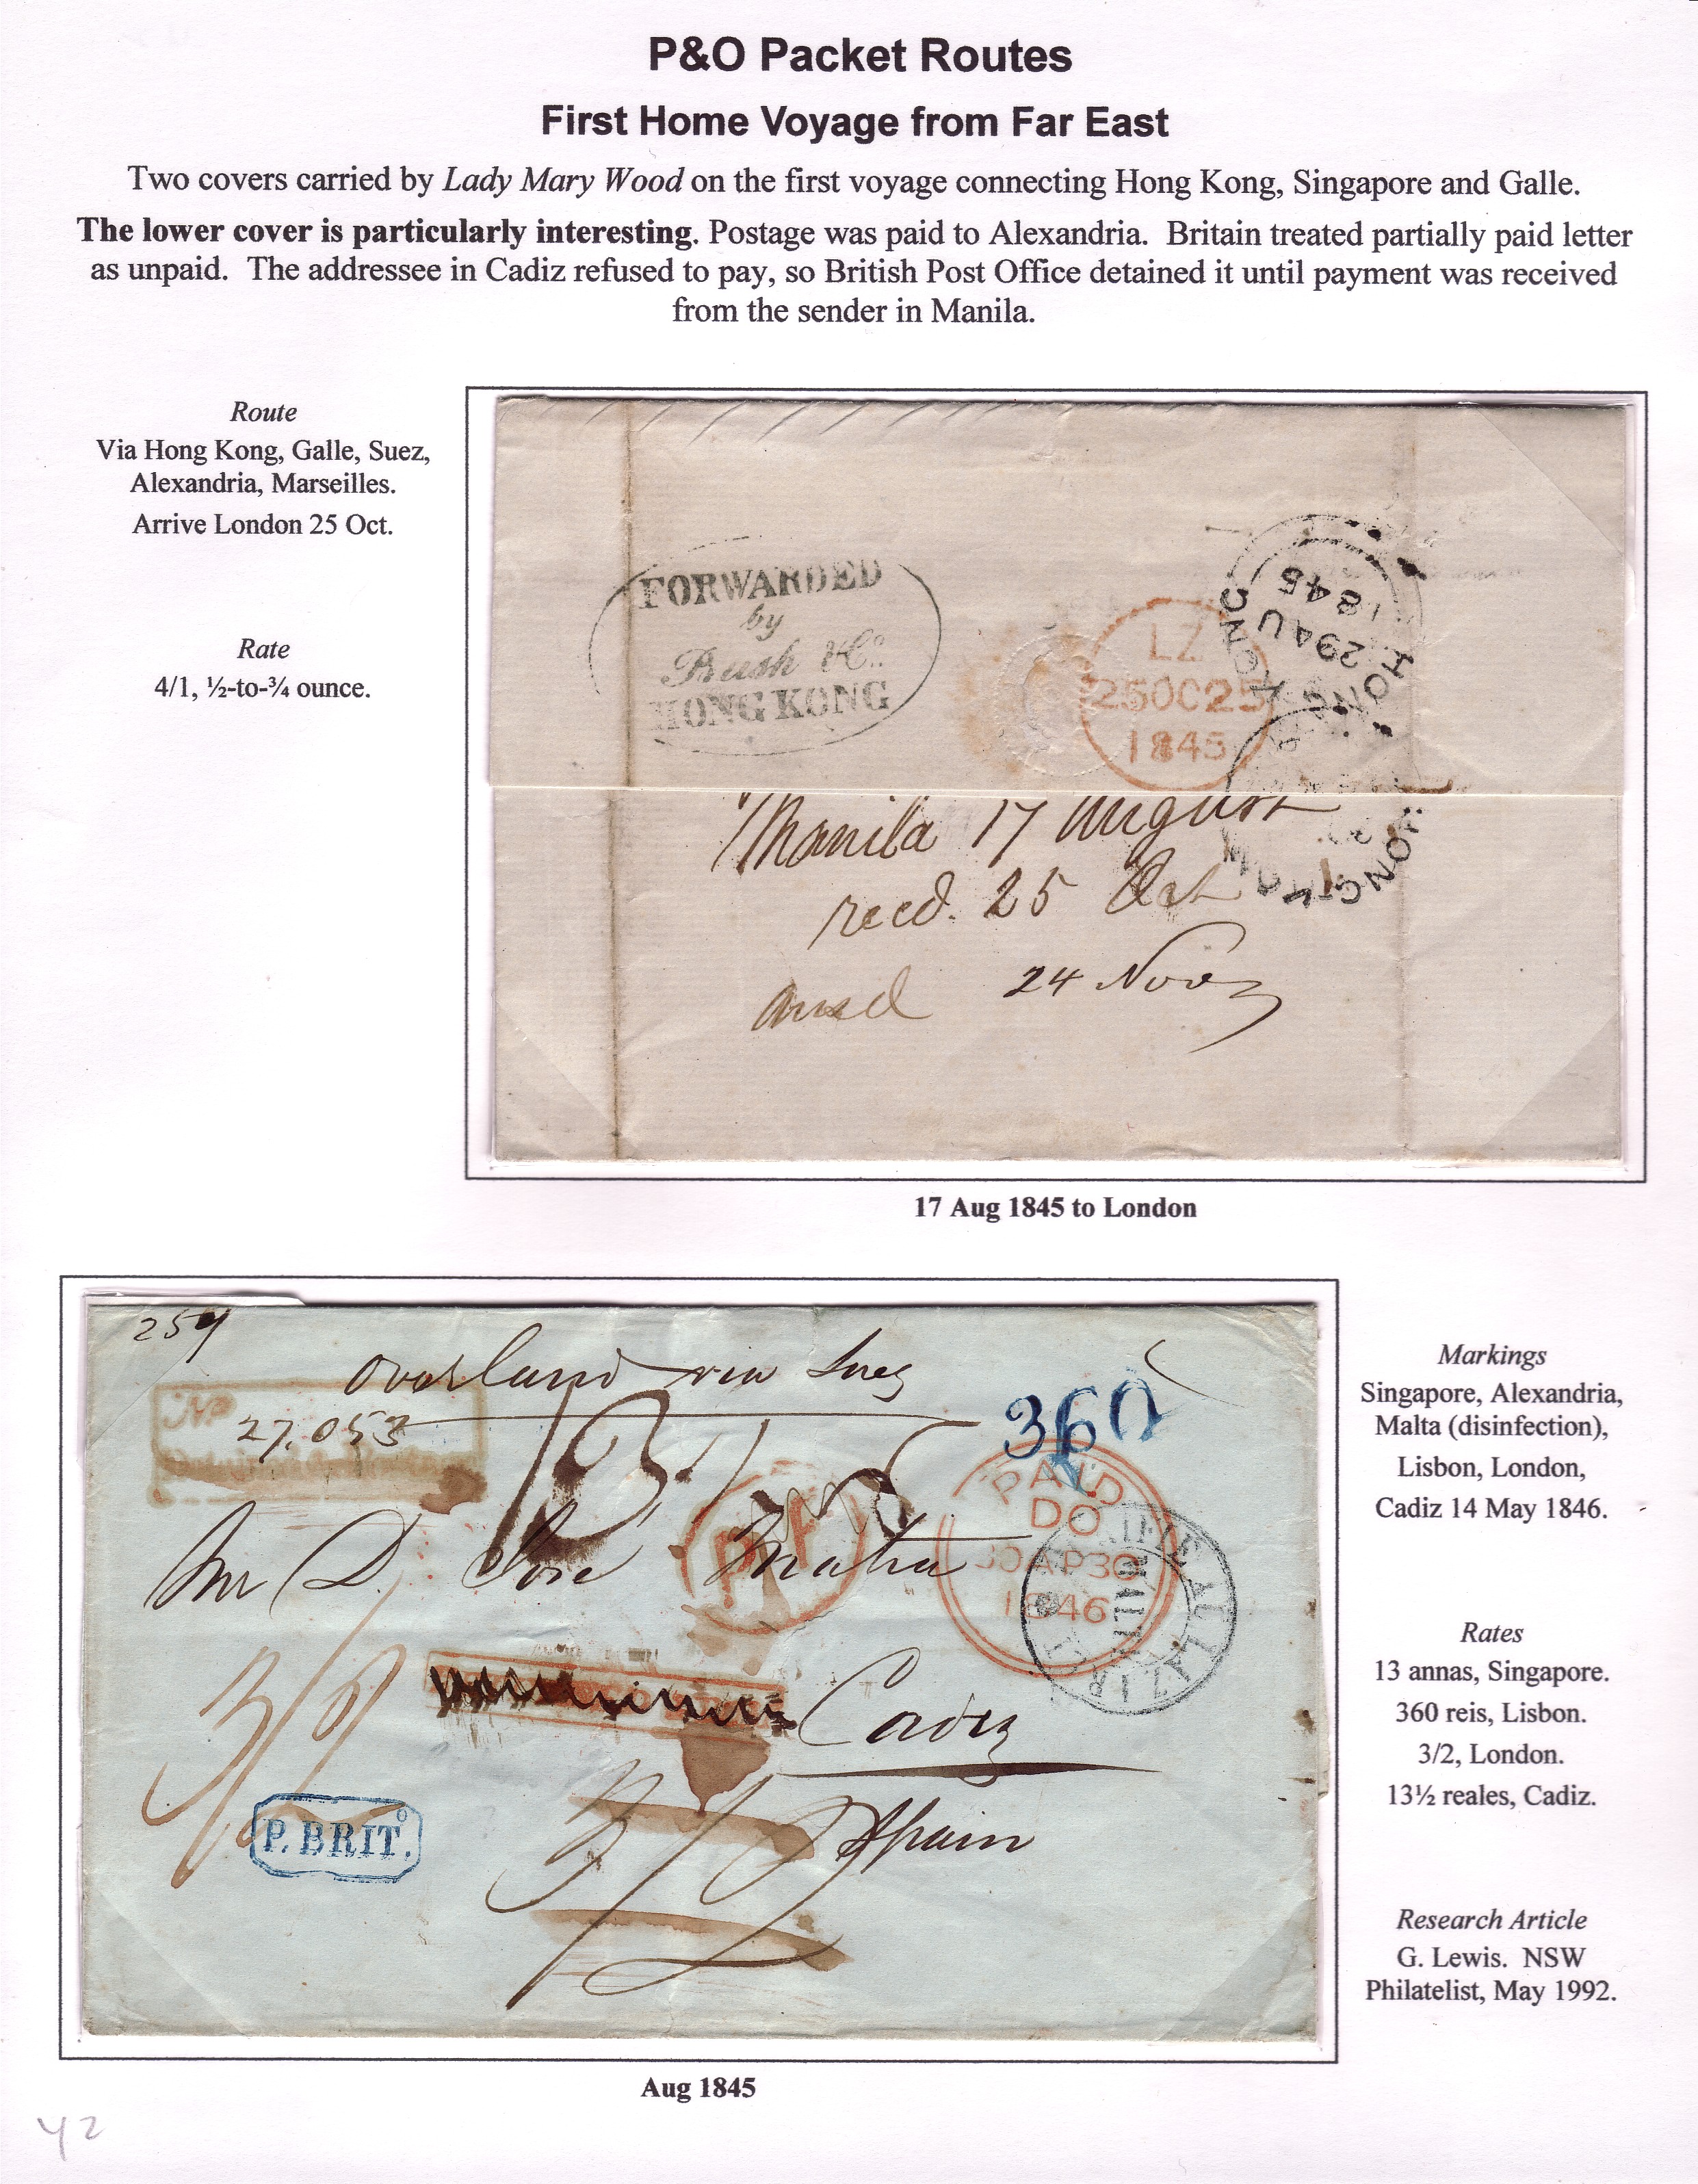 P&O Packet Routes
First Home Voyage from Far East
Two covers carried by Lady Mary Wood on the first voyage connecting Hong Kong, Singapore and Galle.
The lower cover is particularly interesting. Postage was paid to Alexandria. Britain treated partially paid letter
as unpaid. The addressee in Cadiz refused to pay, so British Post Office detained it until payment was received
from the sender in Manila.
Route
Via Hong Kong, Galle, Suez,
Alexandria, Marseilles.
Arrive London 25 Oct.
Rate
4/1, ½-to-¾ ounce.
FORWARDED
by
Bush & Co.
HONG KONG
LZ
25OC25
1845
HONG KONG
29AU
1845
HONG
Manila 17 August
recd. 25 Oct
ansd 24 Nov
17 Aug 1845 to London
259
Overland via Suez
No
27,053
360
PAID
DO
30AP30
1846
Sr D. Jose Matia
Cadiz
3/2
P. BRIT.
3/2
Spain
Aug 1845
Markings
Singapore, Alexandria,
Malta (disinfection),
Lisbon, London,
Cadiz 14 May 1846.
Rates
13 annas, Singapore.
360 reis, Lisbon.
3/2, London.
13½ reales, Cadiz.
Research Article
G. Lewis. NSW
Philatelist, May 1992.
Y2